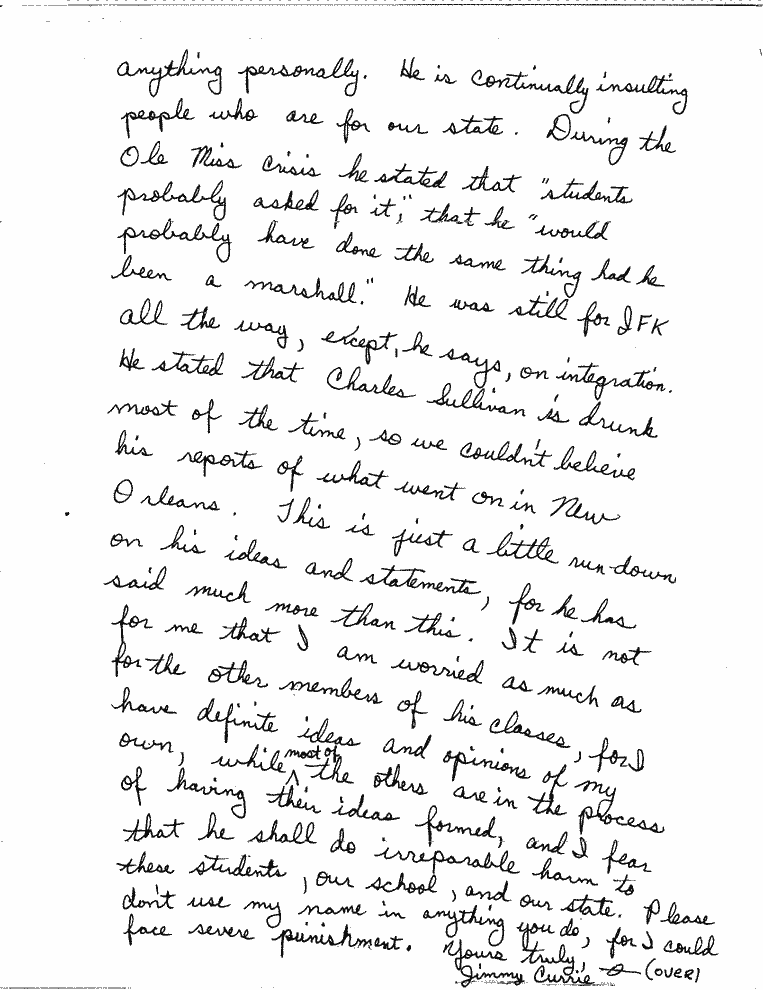 anything personally. He is continually insulting
people who are for our state. During the
Ole Miss crisis he stated that "students
probably asked for it," that he "would
probably have done the same thing had he
been a marshall." He was still for JFK
all the way, except, he says, on integration.
He stated that Charles Sullivan is drunk
most of the time, so we couldn't believe
his reports of what went on in New
Orleans. This is just a little run-down
on his ideas and statements, for he has
said much more than this. It is not
for me that I am worried as much as
for the other members of his classes, for I
have definite ideas and opinions of my
own, while most of the others are in the process
of having their ideas formed, and I fear
that he shall do irreparable harm to
these students, our school, and our state. Please
don't use my name in anything you do, for I could
face severe punishment. Yours truly,
Jimmy Currie (OVER)